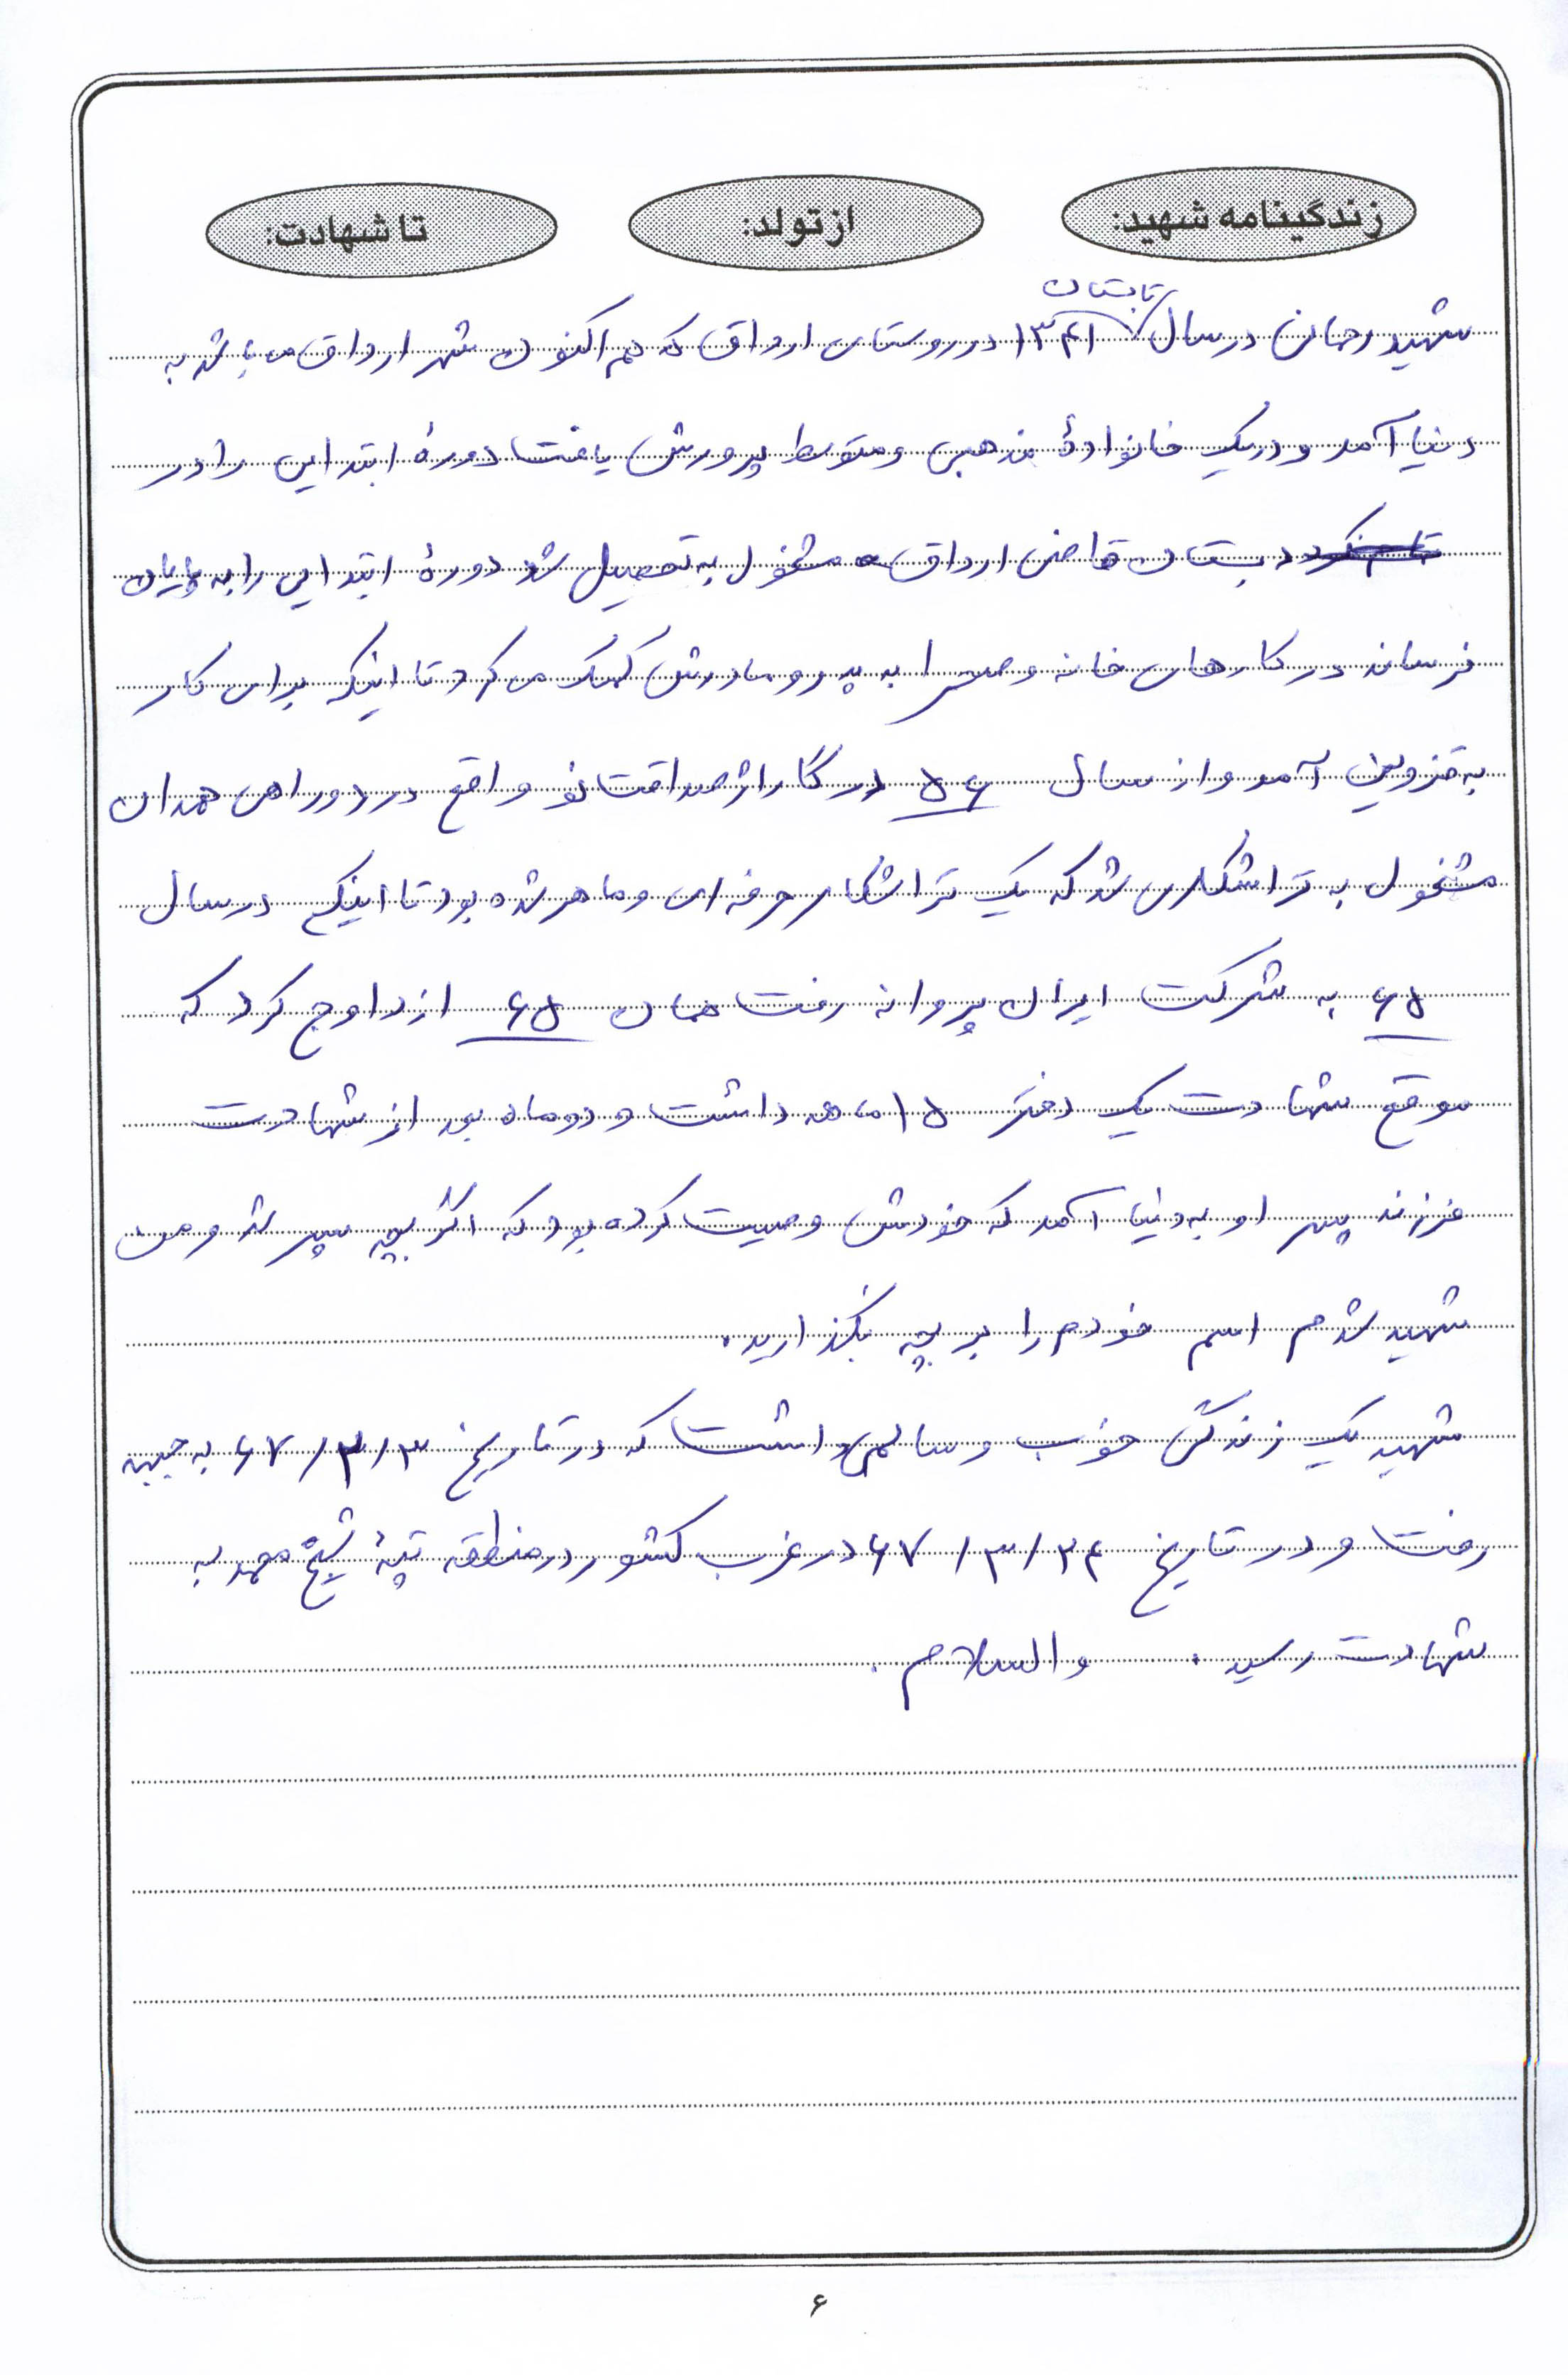 زندگینامه شهید: از تولد: تا شهادت:
تابستان
شهید رحمانی در سال ۱۳۴۱ در روستای ارداق که هم اکنون شهر ارداق می باشد به
دنیا آمد و در یک خانوادهٔ مذهبی و متوسط پرورش یافت دورهٔ ابتدایی را در
دبستان قاضی ارداق مشغول به تحصیل شد دورهٔ ابتدایی را به پایان
نرساند در کارهای خانه و صحرا به پدر و مادرش کمک می کرد تا اینکه برای کار
به قزوین آمد و از سال ۵۶ در گاراژ صداقتانو واقع در دوراهی همدان
مشغول به تراشکاری شد که یک تراشکار حرفه ای و ماهر شده بود تا اینکه در سال
۶۵ به شرکت ایران پروانه رفت همان ۶۵ ازداوج کرد که
موقع شهادت یک دختر ۱۵ ماهه داشت و دو ماه بعد از شهادت
فرزند پسر او به دنیا آمد که خودش وصیت کرده بود که اگر بچه پسر شد و من
شهید شدم اسم خودم را بر بچه بگذارید.
شهید یک زندگی خوب و سالمی داشت که در تاریخ ۶۷/۳/۳ به جبهه
رفت و در تاریخ ۶۷/۳/۲۴ در غرب کشور در منطقه تپهٔ شیخ محمد به
شهادت رسید. والسلام.
۶